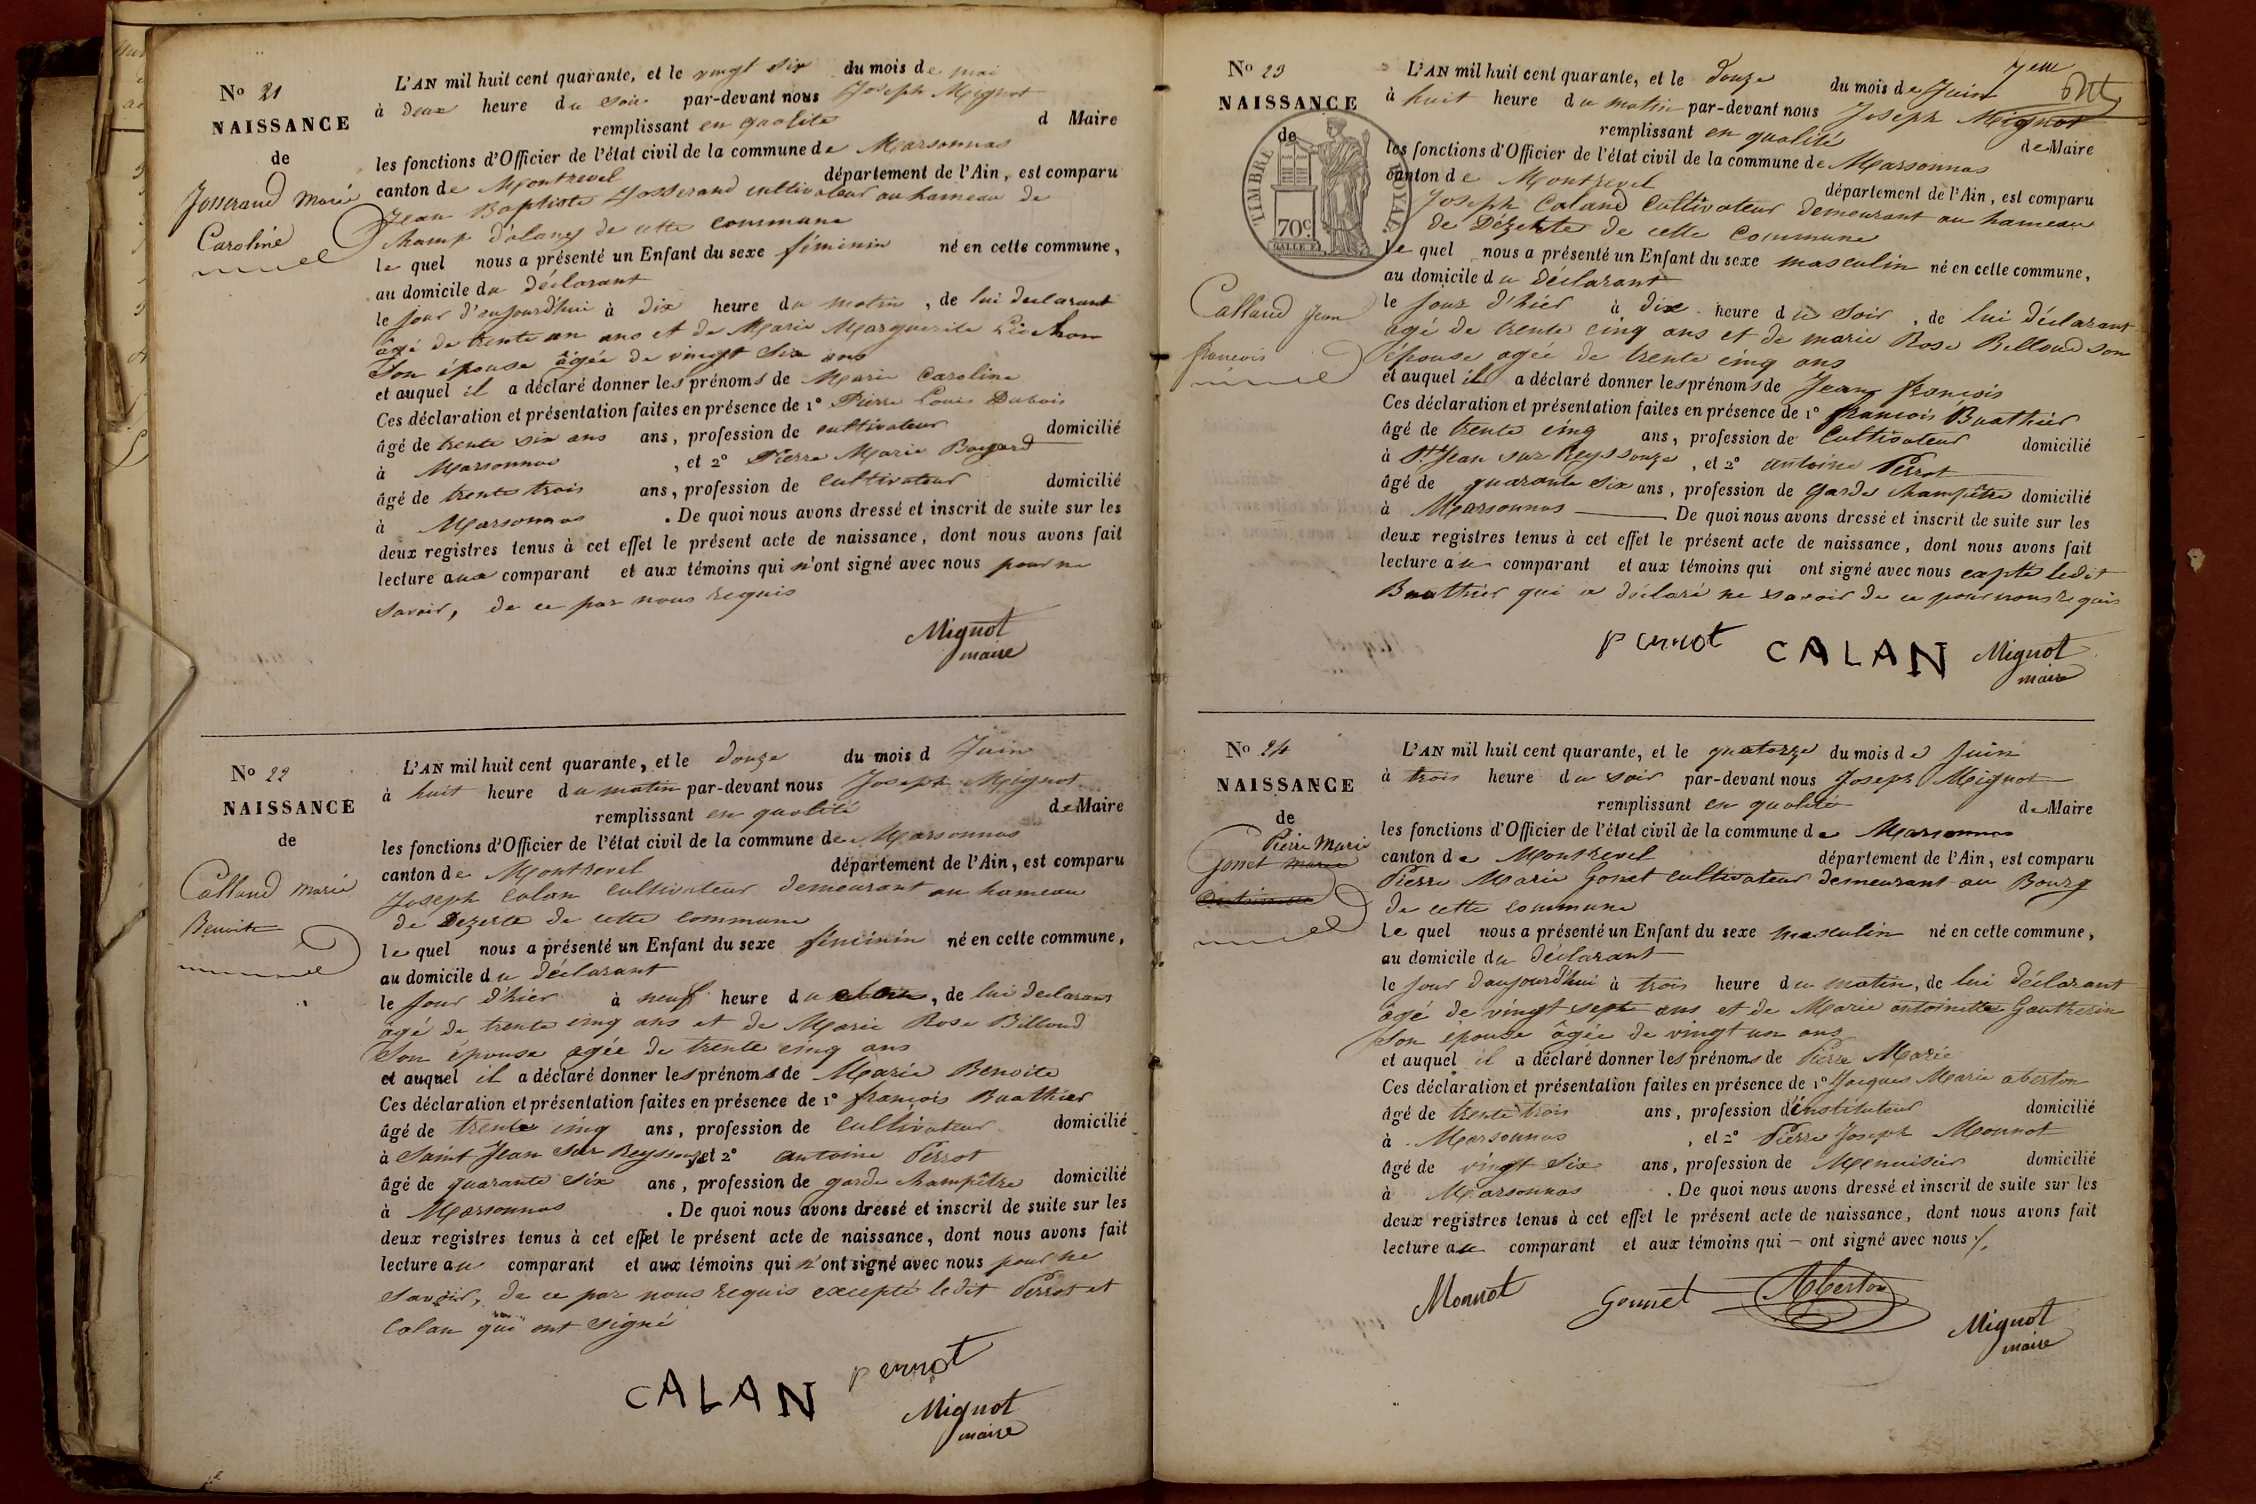 No 21
NAISSANCE
de
Josserand Marie
Caroline
L'AN mil huit cent quarante, et le vingt six du mois de mai
à deux heure du soir par-devant nous Joseph Mignot
remplissant en qualité d Maire
les fonctions d'Officier de l'état civil de la commune de Marsonnas
canton de Montrevel département de l'Ain, est comparu
Jean Baptiste Josserand cultivateur au hameau de
champ de cette commune
le quel nous a présenté un Enfant du sexe féminin né en cette commune,
au domicile du déclarant
le jour d'aujourd'hui à dix heure du matin, de lui declarant
âgé de trente un ans et de Marie Marguerite
Son épouse âgée de vingt six ans
et auquel il a déclaré donner les prénoms de Marie Caroline
Ces déclaration et présentation faites en présence de 1° Pierre Louis Dubois
âgé de trente six ans ans, profession de cultivateur domicilié
à Marsonnas, et 2° Pierre Marie
âgé de trente trois ans, profession de cultivateur domicilié
à Marsonnas. De quoi nous avons dressé et inscrit de suite sur les
deux registres tenus à cet effet le présent acte de naissance, dont nous avons fait
lecture aux comparant et aux témoins qui n'ont signé avec nous pour ne
savoir, de ce par nous requis
Mignot
maire
No 22
NAISSANCE
de
Calland Marie
Benoite
L'AN mil huit cent quarante, et le douze du mois d Juin
à huit heure du matin par-devant nous Joseph Mignot
remplissant en qualité de Maire
les fonctions d'Officier de l'état civil de la commune de Marsonnas
canton de Montrevel département de l'Ain, est comparu
Joseph Calan cultivateur demeurant au hameau
de Dezerte de cette commune
le quel nous a présenté un Enfant du sexe féminin né en cette commune,
au domicile du déclarant
le jour d'hier à neuf heure du soir, de lui declarant
âgé de trente cinq ans et de Marie Rose Billoud
Son épouse agée de trente cinq ans
et auquel il a déclaré donner les prénoms de Marie Benoite
Ces déclaration et présentation faites en présence de 1° françois Buathier
âgé de trente cinq ans, profession de cultivateur domicilié
à Saint Jean sur Reyssouze, et 2° antoine Perrot
âgé de quarante six ans, profession de garde champêtre domicilié
à Marsonnas. De quoi nous avons dressé et inscrit de suite sur les
deux registres tenus à cet effet le présent acte de naissance, dont nous avons fait
lecture au comparant et aux témoins qui n'ont signé avec nous pour ne
savoir, de ce par nous requis excepté ledit Perrot et
Calan qui ont signé
CALAN perrot
Mignot
maire
7eme
No 23
NAISSANCE
de
TIMBRE ROYAL
70c
Calland Jean
francois
L'AN mil huit cent quarante, et le douze du mois de Juin
à huit heure du matin par-devant nous Joseph Mignot
remplissant en qualité de Maire
les fonctions d'Officier de l'état civil de la commune de Marsonnas
canton de Montrevel département de l'Ain, est comparu
Joseph Caland Cultivateur demeurant au hameau
de Dézerte de cette Commune
le quel nous a présenté un Enfant du sexe masculin né en cette commune,
au domicile du déclarant
le jour d'hier à dix heure du soir, de lui déclarant
âgé de trente cinq ans et de marie Rose Billoud son
épouse agée de trente cinq ans
et auquel il a déclaré donner les prénoms de Jean françois
Ces déclaration et présentation faites en présence de 1° francois Buathier
âgé de trente cinq ans, profession de Cultivateur domicilié
à St Jean sur Reyssouze, et 2° antoine Perrot
âgé de quarante six ans, profession de garde champêtre domicilié
à Marsonnas De quoi nous avons dressé et inscrit de suite sur les
deux registres tenus à cet effet le présent acte de naissance, dont nous avons fait
lecture au comparant et aux témoins qui ont signé avec nous expté ledit
Buathier qui a déclaré ne savoir de ce par nous requis
perrot CALAN Mignot
maire
No 24
NAISSANCE
de
Pierre Marie
Gonet Marie
L'AN mil huit cent quarante, et le quatorze du mois de Juin
à trois heure du soir par-devant nous Joseph Mignot
remplissant en qualité de Maire
les fonctions d'Officier de l'état civil de la commune de Marsonnas
canton de Montrevel département de l'Ain, est comparu
Pierre Marie Gonet cultivateur demeurant au Bourg
de cette commune
Le quel nous a présenté un Enfant du sexe masculin né en cette commune,
au domicile du déclarant
le jour d'aujourd'hui à trois heure du matin, de lui déclarant
âgé de vingt sept ans et de Marie antoinette Gautherin
Son épouse âgée de vingt un ans
et auquel il a déclaré donner les prénoms de Pierre Marie
Ces déclaration et présentation faites en présence de 1° Jacques Marie aberton
âgé de trente trois ans, profession d'instituteur domicilié
à Marsonnas, et 2° Pierre Joseph Monnot
âgé de vingt six ans, profession de Menuisier domicilié
à Marsonnas. De quoi nous avons dressé et inscrit de suite sur les
deux registres tenus à cet effet le présent acte de naissance, dont nous avons fait
lecture au comparant et aux témoins qui – ont signé avec nous /.
Monnot Gonnet Aberton
Mignot
maire